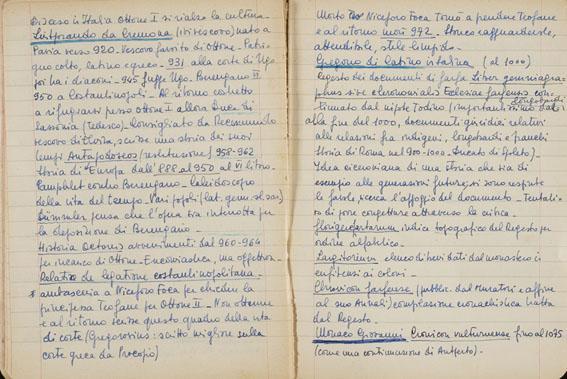 Disceso in Italia Ottone I si rialza la cultura.
Liutprando da Cremona (ivi vescovo) nato a
Pavia verso 920. Vescovo favorito di Ottone. Patri-
gno colto, latino e greco. 931 alla corte di Ugo
poi ha i diaconi - 945 fugge Ugo. Berengario II.
950 a Costantinopoli. Al ritorno costretto
a rifugiarsi presso Ottone I allora Duca di
Sassonia (tedesco). Consigliato da Recesmundo
vescovo di Elvira, scrisse una storia dei suoi
tempi Antapodoseos (restitutione) 958-962
Storia di Europa dall'888 al 950 al VI libro.
Pamphlet contro Berengario. Caleidoscopio
della vita del tempo. Vari popoli (lat. germ. sl. sar.)
pensa che l'opera sia interrotta per
la deposizione di Berengario.
Historia Ottonis avvenimenti dal 960-964
per incarico di Ottone. Encomiastica, ma oggettiva
Relatio de legatione costantinopolitana.
* ambasceria a Niceforo Foca per chieder la
principessa Teofane per Ottone II. Non ottenne
e al ritorno scrisse questo quadro della vita
di corte (Gregorovius: scritto migliore sulla
corte greca da Procopio)
Morto Niceforo Foca tornò a prendere Teofane
e al ritorno morì 972. Storico ragguardevole,
attendibile, stile limpido.
Gregorio di Catino in Sabina (al 1000)
Regesto dei documenti di Farfa Liber gemniagra-
phus sive cleronomialis Ecclesiae farfensis con-
tinuato dal nipote Todino (importantissimo dai
longobardi
alla fine del 1000, documenti giuridici relativi
alle relazioni fra indigeni, longobardi e franchi
Storia di Roma nel 900-1000. Ducato di Spoleto).
Idea ciceroniana di una storia che sia di
esempio alle generazioni future, si sono respinte
le favole, ricerca l'appoggio del documento. Tentati-
vo di porre congetture attraverso la critica.
Florigerfartarum indice topografico del Regesto per
ordine alfabetico.
Largitorium elenco di beni dati dal monastero in
enfiteusi ai coloni.
Chronicon farfense (pubbl. dal Muratori e affine
al suo Annali) compilazione cronachistica tratta
dal Regesto.
Monaco Giovanni Cronicon vulturnense fino al 1075
(come una continuazione di Autperto).